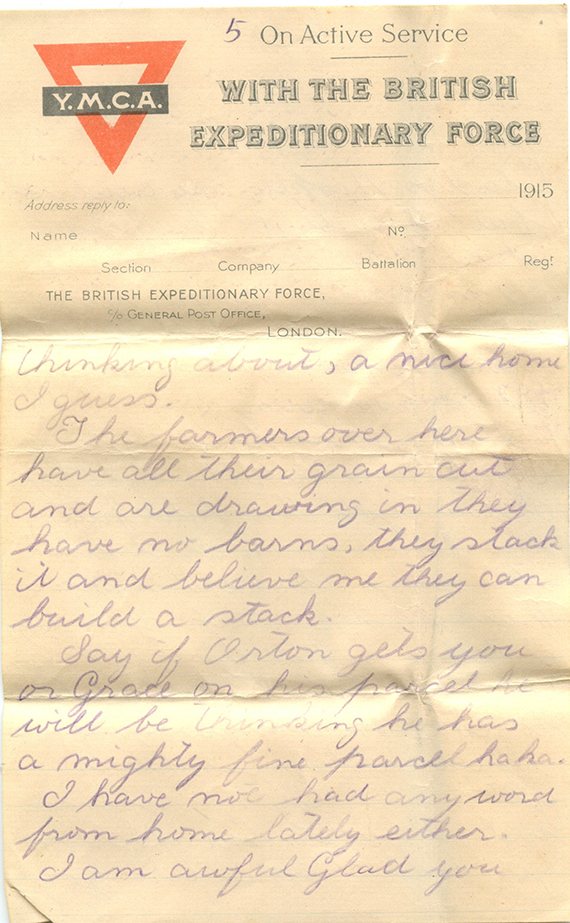 5 On Active Service
WITH THE BRITISH
EXPEDITIONARY FORCE
Y.M.C.A.
1915
Address reply to:
Name No.
Section Company Battalion Regt
THE BRITISH EXPEDITIONARY FORCE,
c/o GENERAL POST OFFICE,
LONDON.
thinking about, a nice home
I guess.
The farmers over here
have all their grain cut
and are drawing in they
have no barns, they stack
it and believe me they can
build a stack.
Say if Orton gets you
or Grace on his parcel he
will be thinking he has
a mighty fine parcel haha.
I have not had any word
from home lately either.
I am awful Glad you